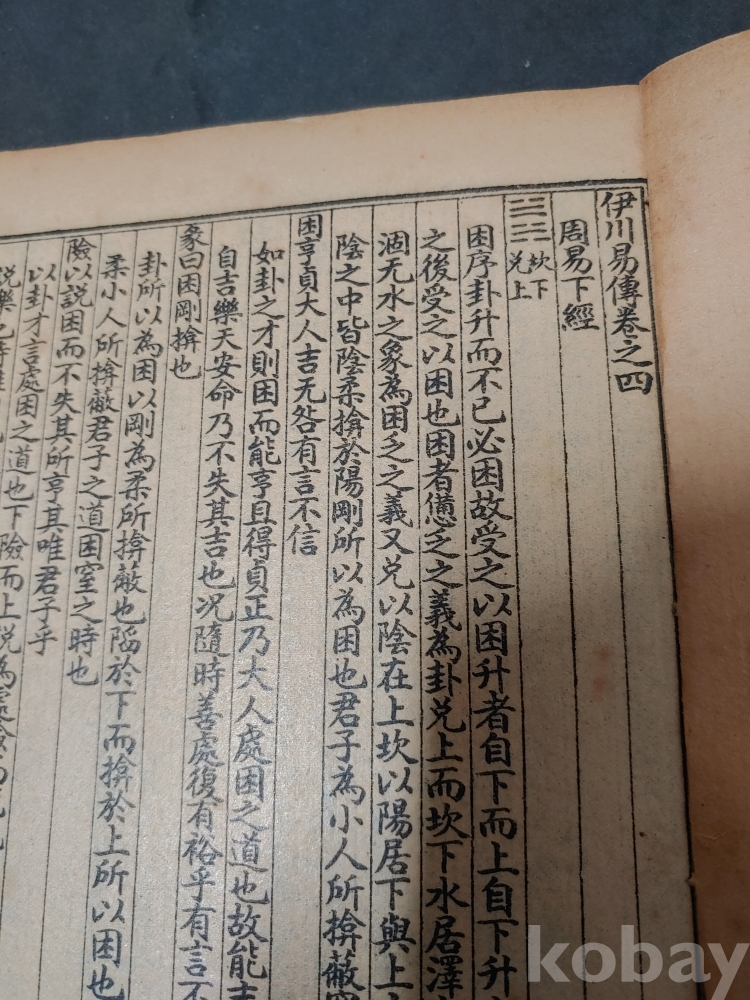 伊川易傳卷之四
周易下經
坎下
兌上
困序卦升而不已必困故受之以困升者自下而上自下升
之後受之以困也困者憊乏之義為卦兌上而坎下水居澤
涸无水之象為困乏之義又兌以陰在上坎以陽居下與上
陰之中皆陰柔揜於陽剛所以為困也君子為小人所揜蔽
困亨貞大人吉无咎有言不信
如卦之才則困而能亨且得貞正乃大人處困之道也故能吉
自吉樂天安命乃不失其吉也况隨時善處復有裕乎有言不
彖曰困剛揜也
卦所以為困以剛為柔所揜蔽也陷於下而揜於上所以困也
柔小人所揜蔽君子之道困窒之時也
險以說困而不失其所亨其唯君子乎
以卦才言處困之道也下險而上說為
說樂
kobay